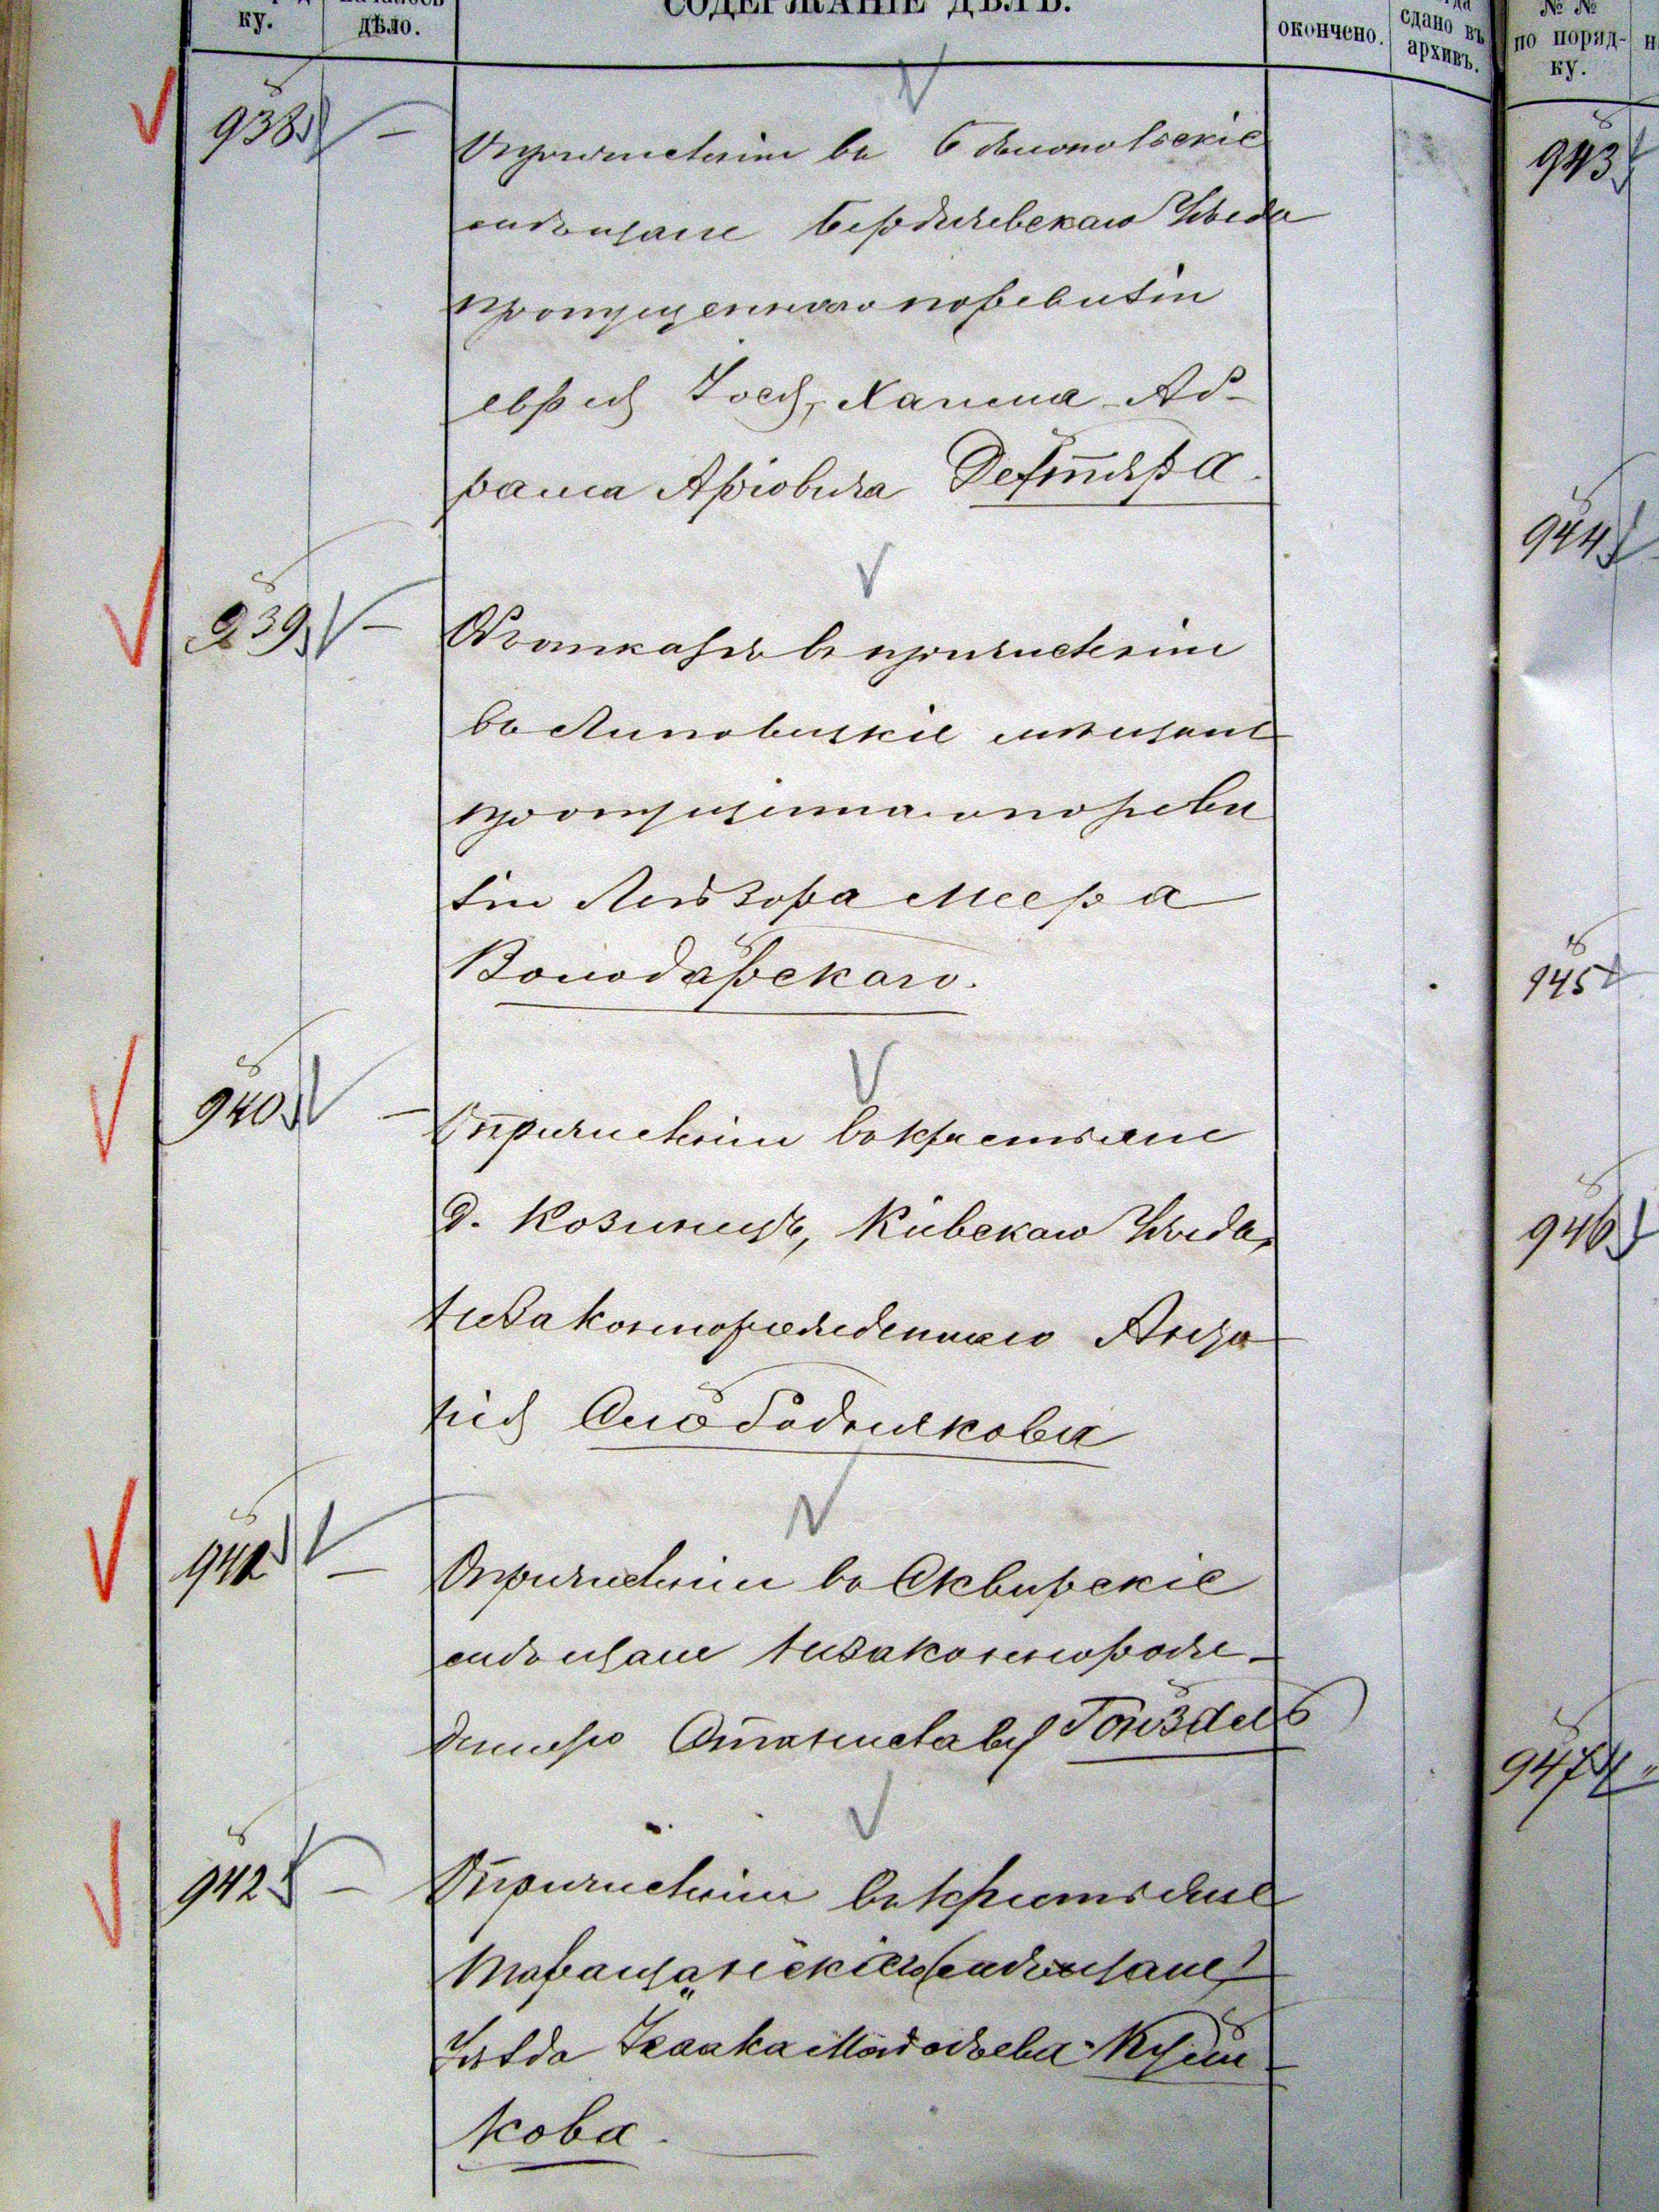 ку.
дѣло.
СОДЕРЖАНІЕ ДѢЛЪ.
окончено.
сдано въ
архивъ.
№ №
по поряд-
ку.
938
О причисленіи въ Бѣлополовскіе
мѣщане Бердичевскаго Уѣзда
пропущеннаго по ревизіи
еврея Іося, Хаима-Аб-
рама Аріовича
939
Объ отказѣ въ причисленіи
въ Липовецкіе мѣщане
пропущеннаго по реви
зіи Лейзора Меера
Володарскаго.
940
О причисленіи въ крестьяне
д. Козинецъ, Кіевскаго Уѣзда,
незаконнорожденнаго Анто
нія Слободянюкова
941
О причисленіи въ Сквирскіе
мѣщане незаконнорож-
деннаго Станислава Гойздель
942
О причисленіи въ крестьяне
Таращанскіе (мѣщане)
Уѣзда Исаака Мордодьева Куш-
кова.
943
944
945
946
947